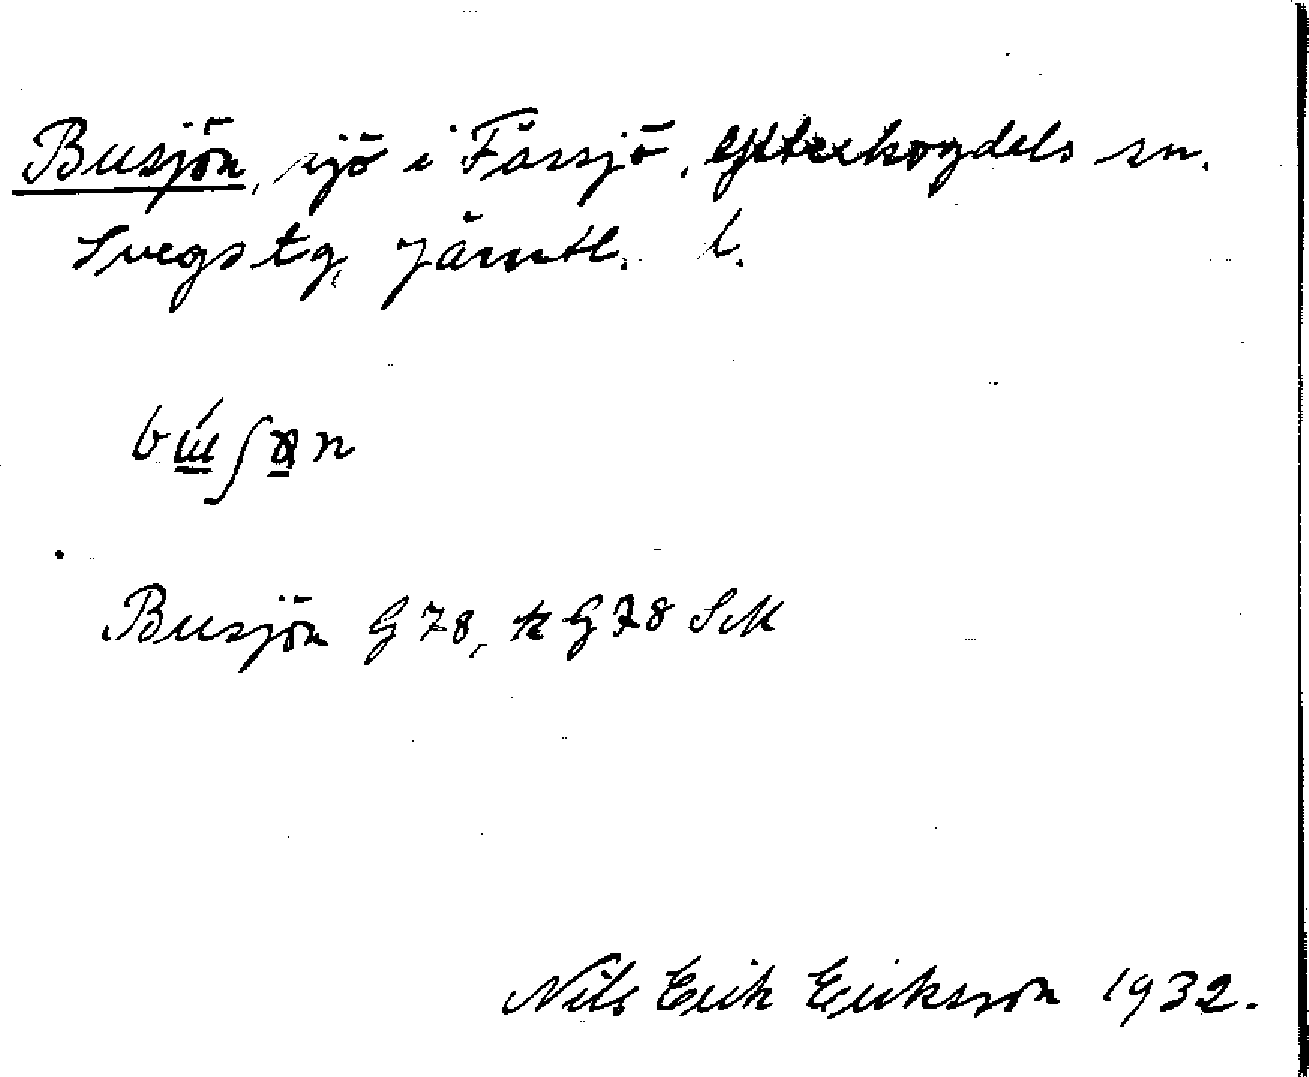 Busjön, sjö i Fåssjö, Ytterhogdals sn.
Svegs tg, Jämtl. l.
Busjön G 78, k G 78 SK
Nils Erik Eriksson 1932.